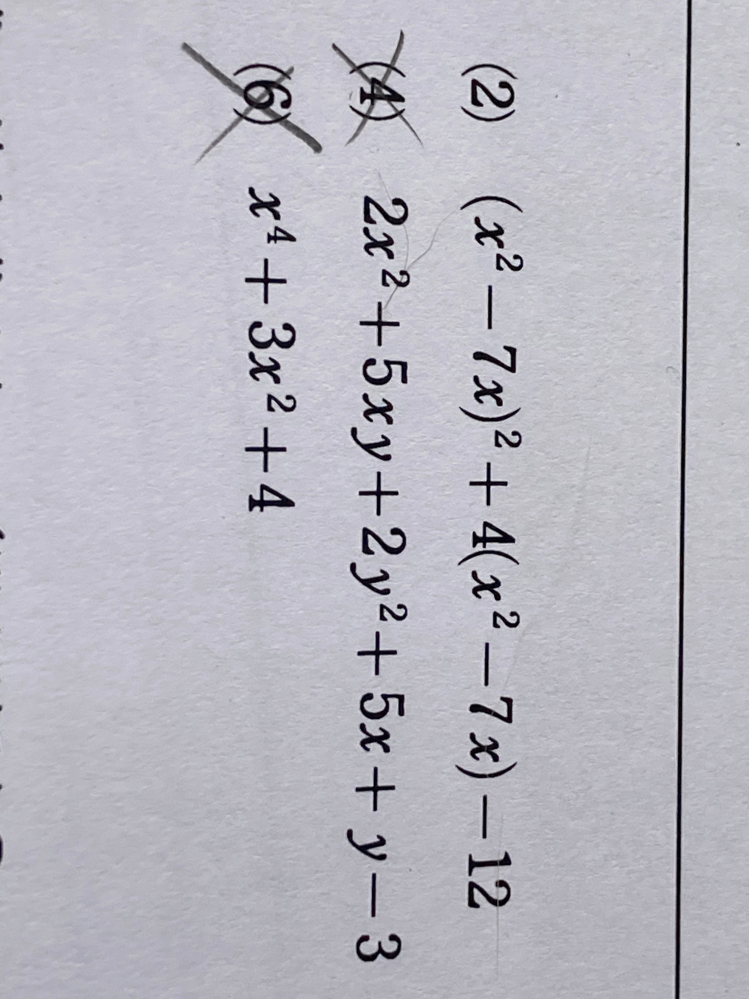 (2) (x² − 7x)² + 4(x² − 7x) − 12
(4) 2x² + 5xy + 2y² + 5x + y − 3
(6) x⁴ + 3x² + 4